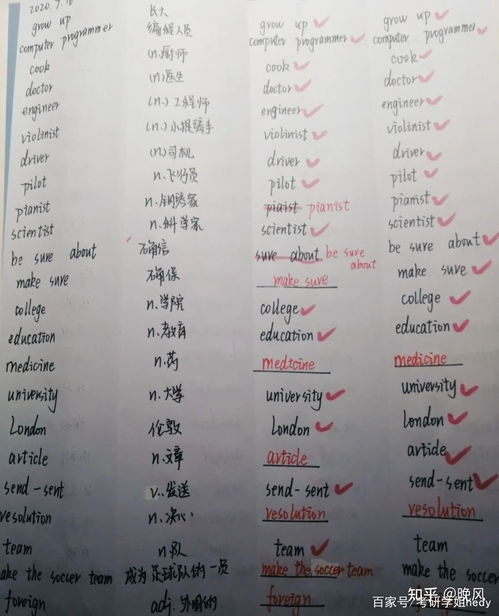 2020.7.16
grow up 长大 grow up grow up
computer programmer 编程人员 computer programmer computer programmer
cook (n.)厨师 cook cook
doctor (n.)医生 doctor doctor
engineer (n.)工程师 engineer engineer
violinist (n.)小提琴手 violinist violinist
driver (n)司机 driver driver
pilot n.飞行员 pilot pilot
pianist n.钢琴家 piaist pianist pianist
scientist n.科学家 scientist scientist
be sure about 确信 sure about be sure about be sure about
make sure 确保 make sure make sure
college n.学院 college college
education n.教育 education education
medicine n.药 medicine medicine
university n.大学 university university
London 伦敦 London London
article n.文章 article article
send-sent v.发送 send-sent send-sent
resolution n.决心 resolution resolution
team n.队 team team
ake the soccer team 成为足球队的一员 make the soccer team make the soccer
foreign adj.外国的 foreign foreign
知乎 @晚风
百家号/考研学姐nerd